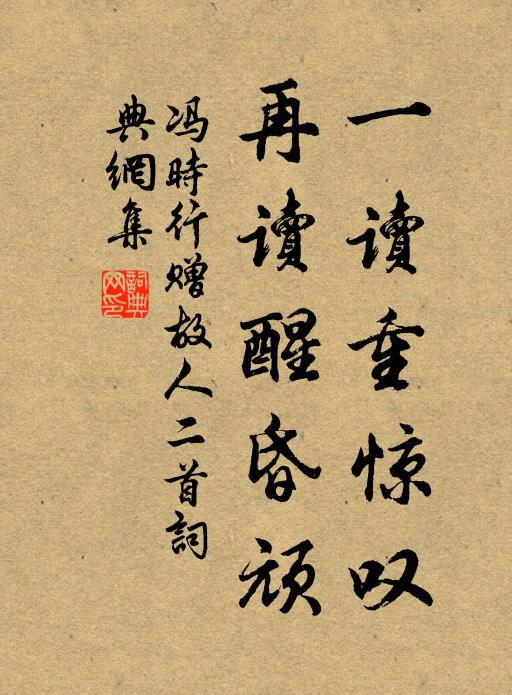 一讀重惊叹
再讀醒昏顽
冯時行赠故人二首詞
典網集
詞典
网印